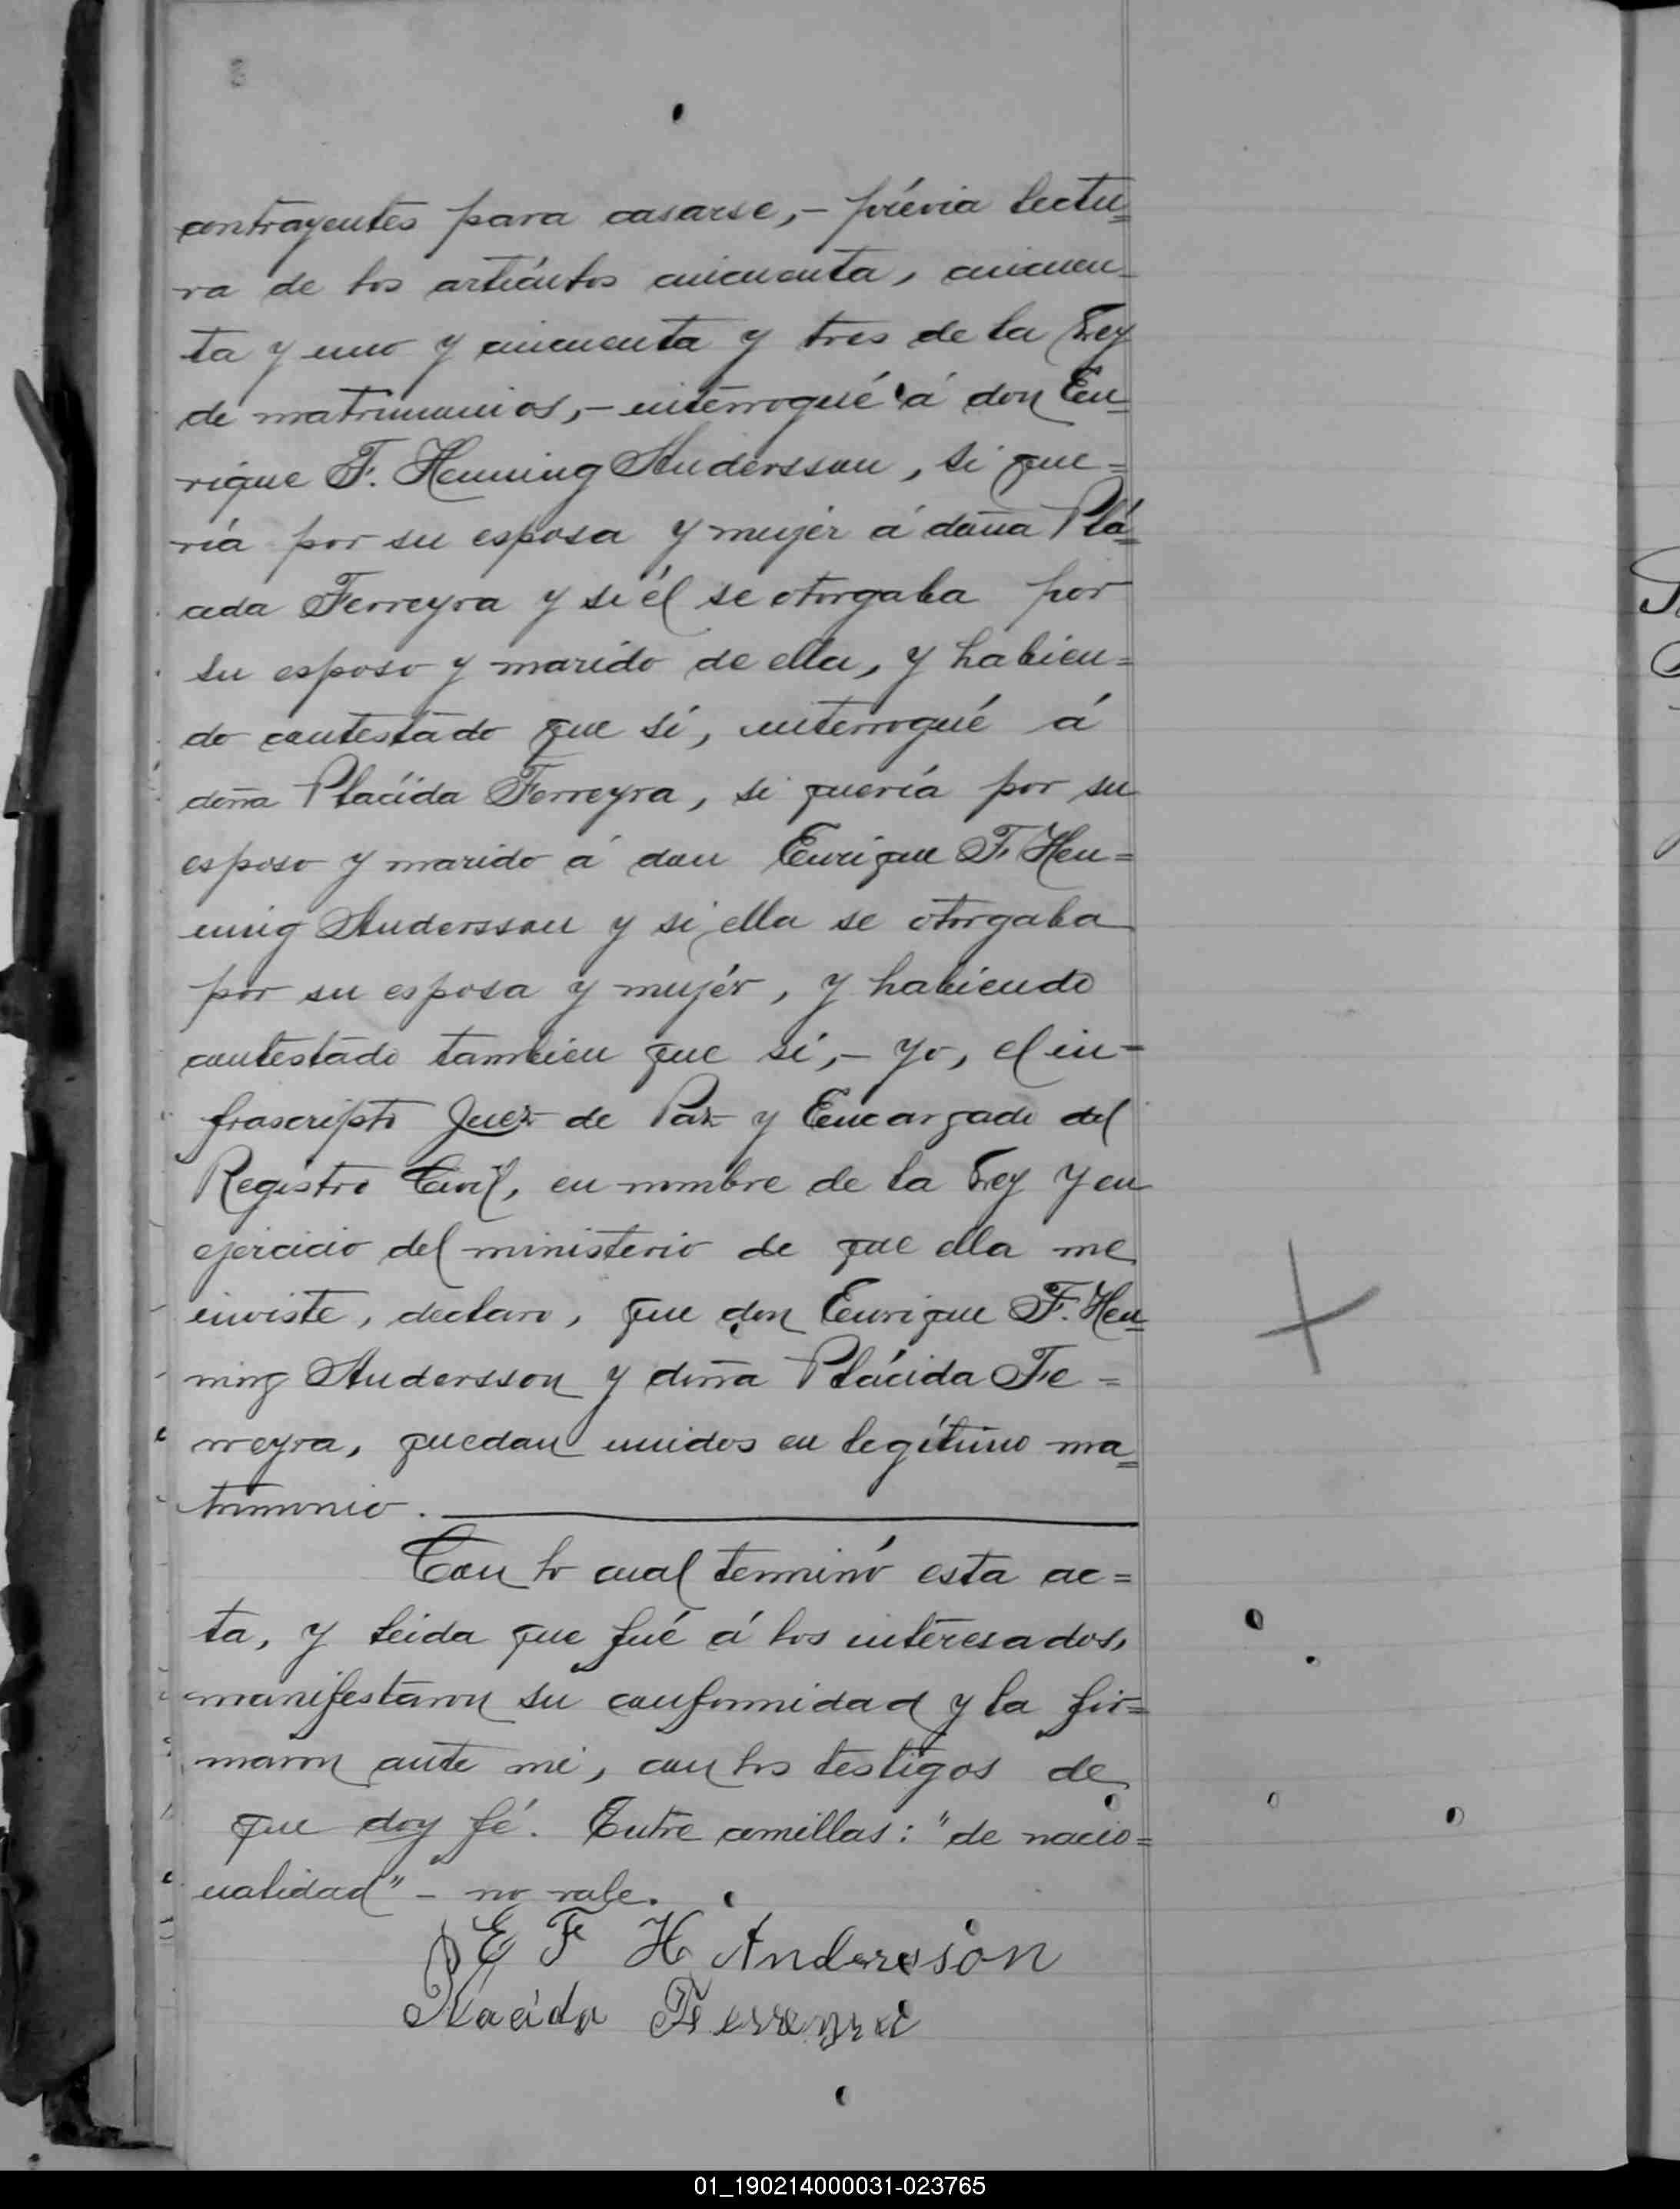 contrayentes para casarse,- prévia lectu=
ra de los artículos cincuenta, cincuen-
ta y uno y cincuenta y tres de la Ley
de matrimonios,- interrogué á don En=
rique F. Henning Andersson, si que=
ría por su esposa y mujér á doña Plá=
cida Ferreyra y si él se otorgaba por
su esposo y marido de ella, y habien=
do contestado que sí, interrogué á
doña Placída Ferreyra, si quería por su
esposo y marido á don Enrique F. Hen=
ning Andersson y si ella se otorgaba
por su esposa y mujér, y habiendo
contestado tambien que sí,- yo, el in-
frascripto Juez de Paz y Encargado del
Registro Civil, en nombre de la Ley y en
ejercicio del ministerio de que ella me
inviste, declaro, que don Enrique F. Hen=
ning Andersson y doña Plácida Fe=
rreyra, quedan unidos en legítimo ma=
trimonio.
Con lo cual terminó esta ac=
ta, y leida que fué á los interesados,
manifestaron su conformidad y la fir=
maron ante mí, con los testigos de
que doy fé. Entre comillas: "de nacio=
nalidad" - no vale.
E F H Andersson
Placida Ferreyra
01_190214000031-023765